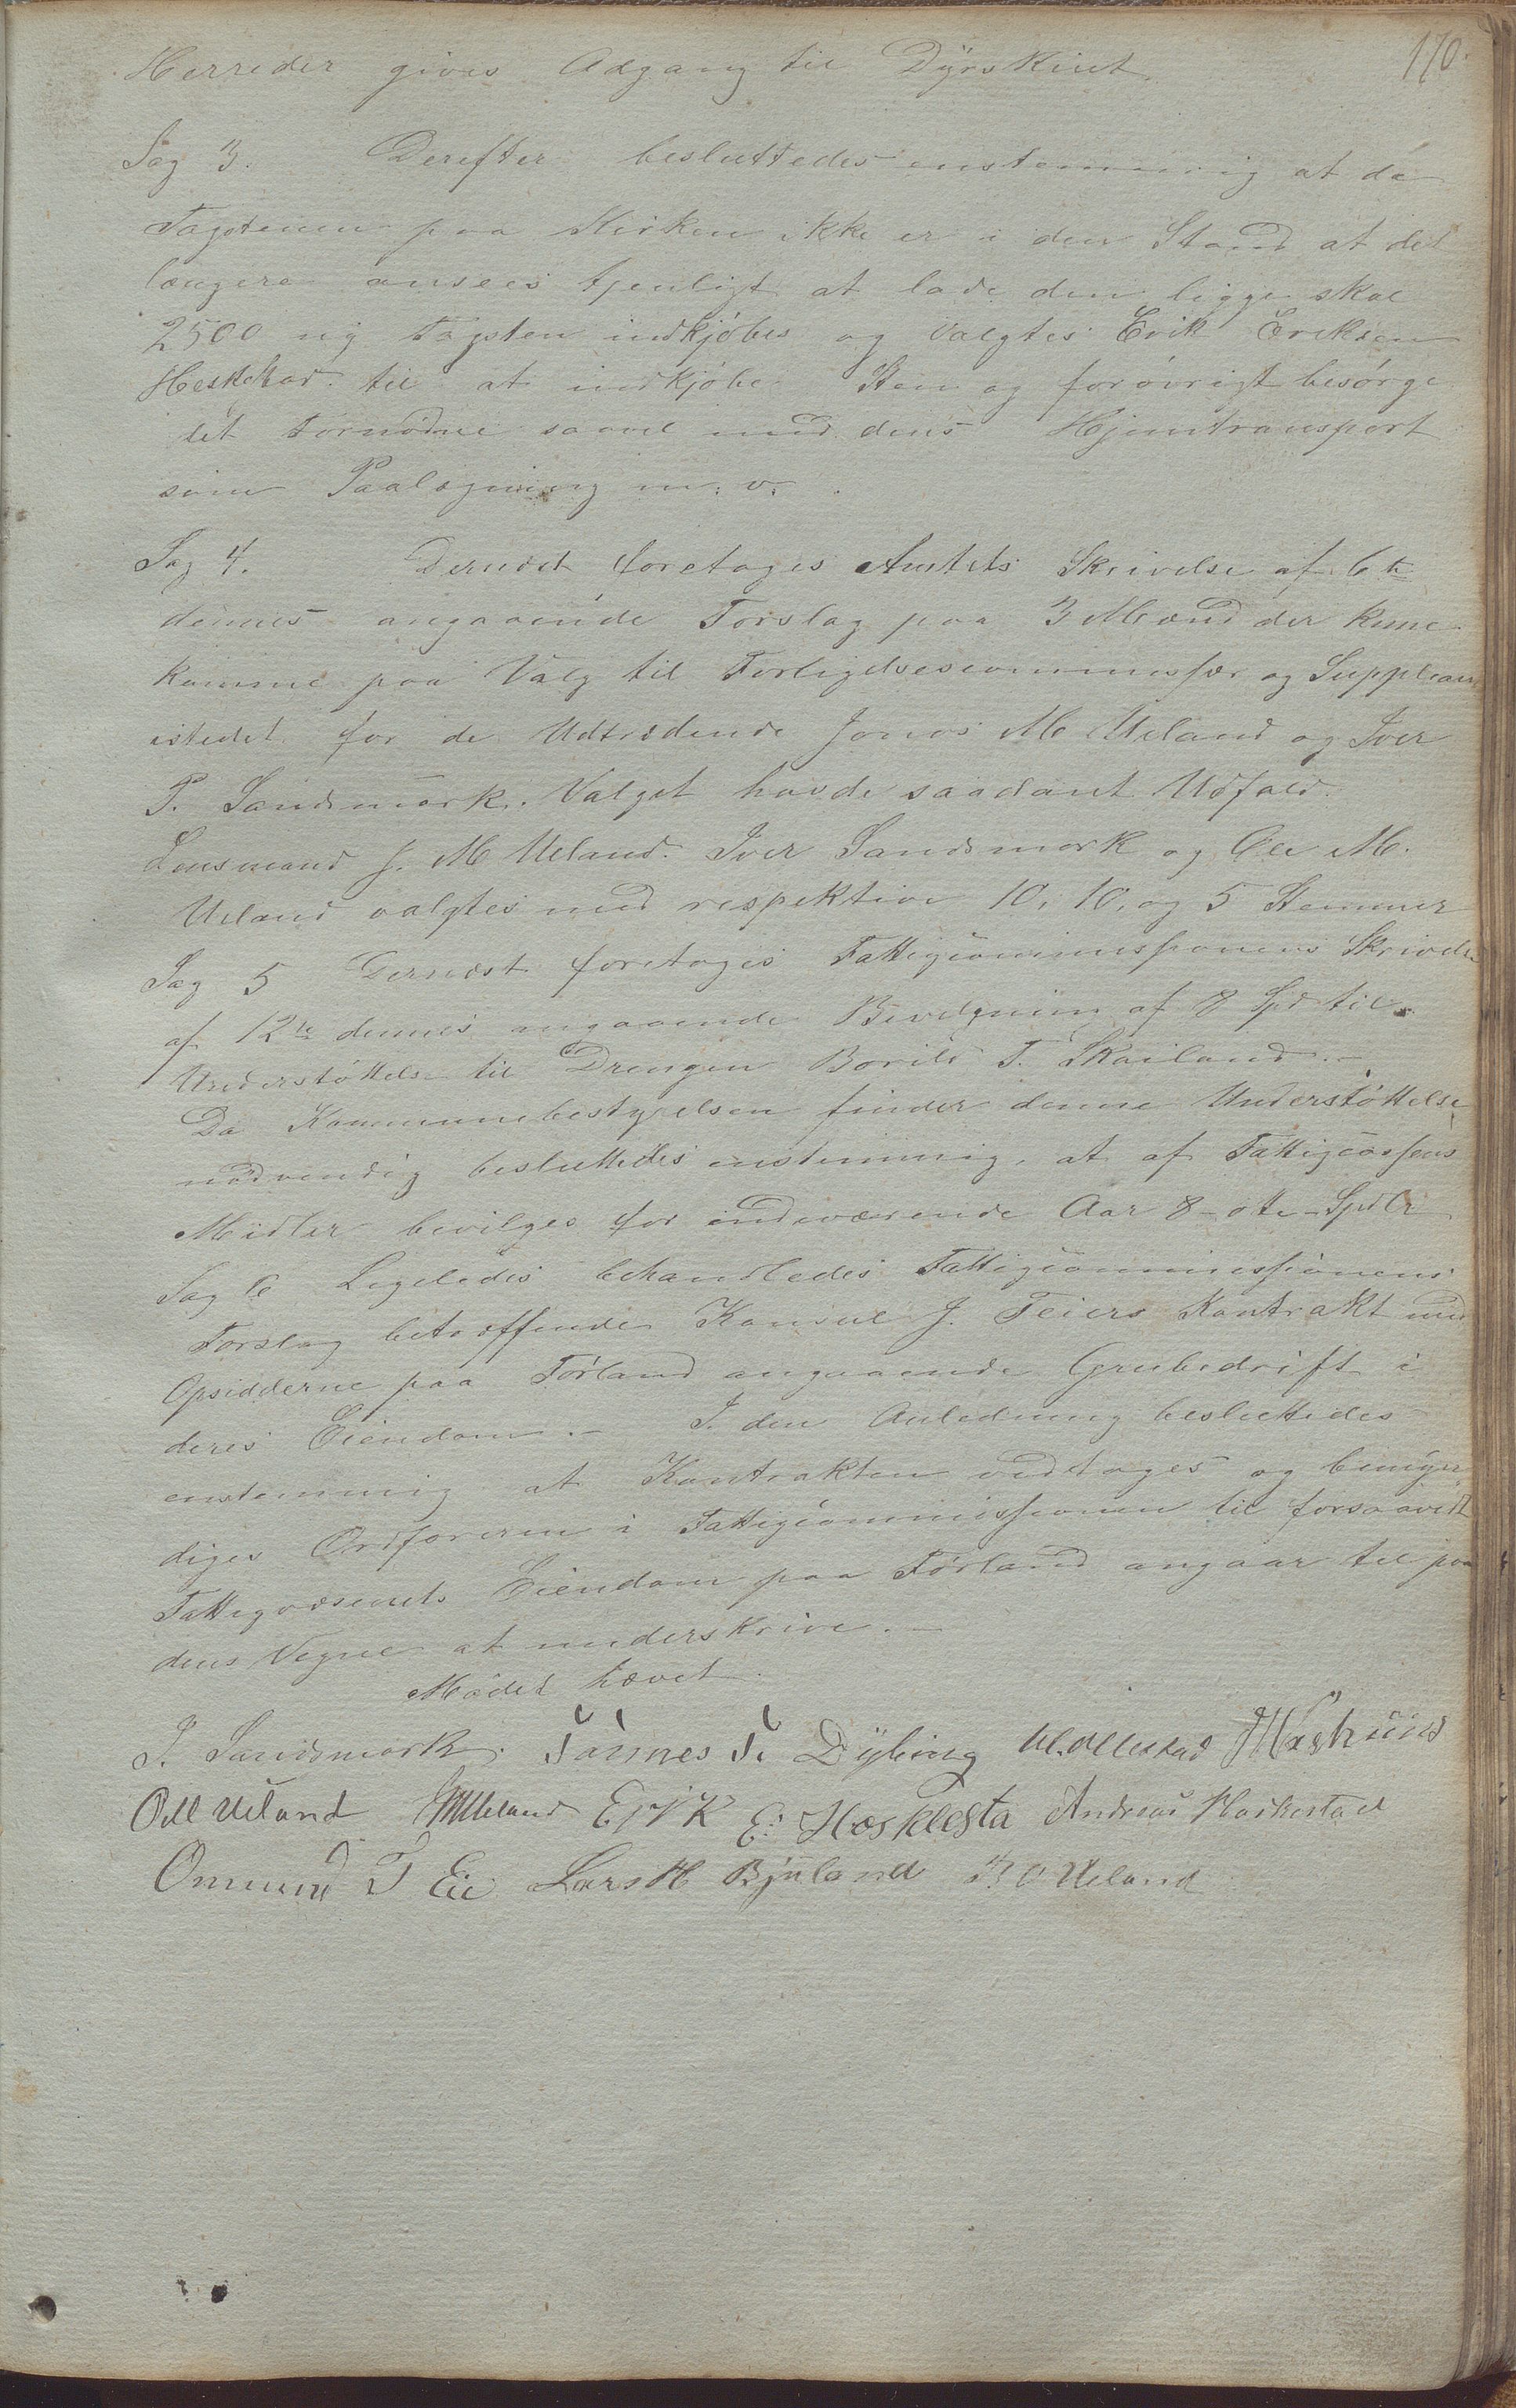 170.
Herreder gives Adgang til Dÿrskuet
Sag 3. Derefter besluttedes enstemmig at da
Tagstenen paa Kirken ikke er i den Stand at det
længere ansees tjenligt at lade den ligge skal
2500 ny Tagsten indkjöbes og valgtes Erik Eriksen
Heskestad til at indkjöbe Sten og forövrigt besörge
det fornödne saavel med dens Hjemtransport
som Paalægning m. v.
Sag 4. Dernæst foretages Amtets Skrivelse af 6te
dennes angaaende Forslag paa 3 Mænd der kune
komme paa Valg til Forligelsescommissær og Supplean
istedet for de Udtrædende Jonas M Ueland og Iver
P. Sandsmark. Valget havde saadant Udfald.
Lensmand J. M Ueland. Iver Sandsmark og Ole M.
Ueland valgtes med respektive 10, 10, og 5 Stemmer
Sag 5 Dernæst foretages Fattigcommissionens Skrivelse
af 12te dennes angaaende Bevilgning af 8 Spd til
Understöttelse til Drengen Borild T. Skailand.-
Da Kommunebestyrelsen finder denne Understöttelse
nödvendig besluttedes enstemmig, at af Fattigcassens
Midler bevilges for indeværende Aar 8 - otte - Spdlr
Sag 6 Ligeledes behandledes Fattigcommissionens
Forslag betræffende Konsul J. Feiers Kontrakt med
Opsidderne paa Förland angaaende Grubedrift i
deres Eiendom.- I den Anledning besluttedes
enstemmig at Kontrakten vedtages og bemyn-
diges Ordföreren i Fattigcommissionen til forsaavidt
Fattigvæsenets Eiendom paa Förland angaar til paa
dens Vegne at underskrive.-
Mödet hævet.
I. Sandsmark. Tönnes T. Dÿbing M. Ollestad
Oll Ueland JMUeland Erik E: Hæsklesta Andreas Haskestad
Ommund T Eie Lars H Bjuland B O Ueland